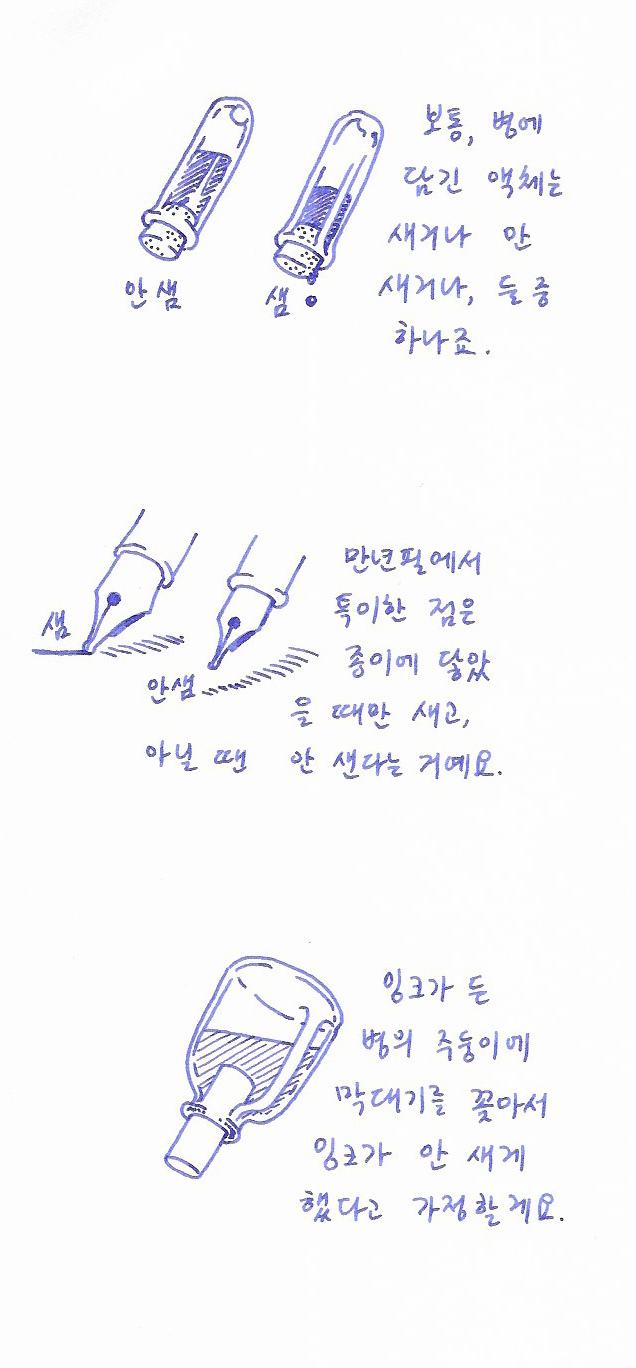 보통, 병에
담긴 액체는
새거나 안
새거나, 둘 중
하나죠.
안 샘
샘
만년필에서
특이한 점은
종이에 닿았
을 때만 새고,
아닐 땐 안 샌다는 거예요.
샘
안샘
잉크가 든
병의 주둥이에
막대기를 꽂아서
잉크가 안 새게
했다고 가정할게요.